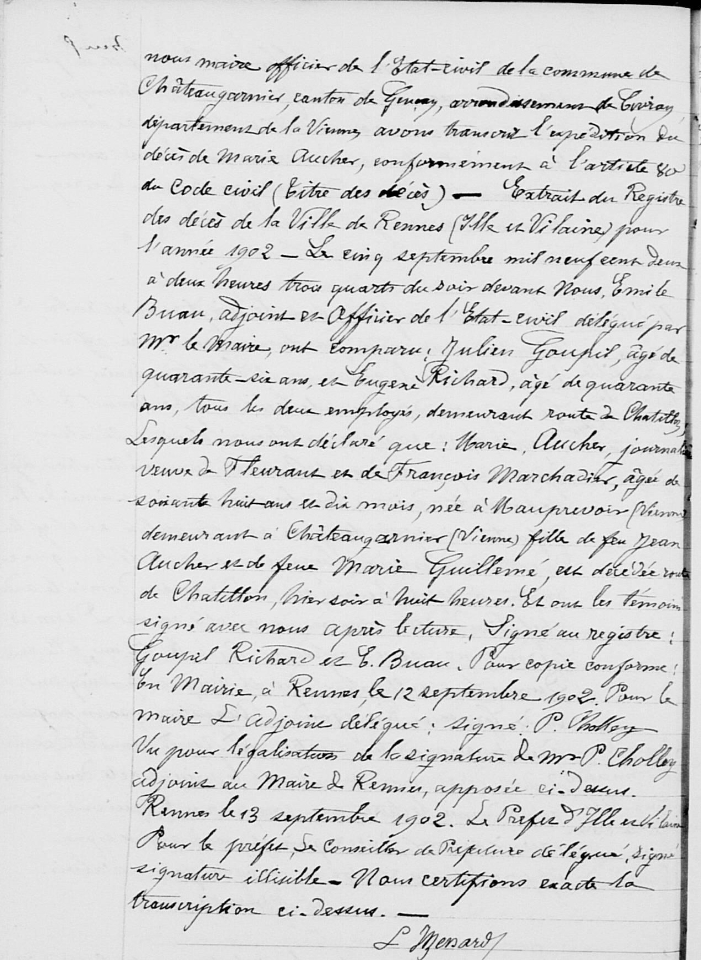 nous maire officier de l'Etat-civil de la commune de
Châteaugarnier, canton de Gençay, arrondissement de Civray
département de la Vienne, avons transcrit l'expédition du
décès de Marie Aucher, conformément à l'article 80
du Code civil (Titre des décès) — Extrait du Registre
des décès de la Ville de Rennes (Ille et Vilaine) pour
l'année 1902 — Le cinq septembre mil neuf cent deux
à deux heures trois quarts du soir devant Nous, Emile
Buau, adjoint et Officier de l'Etat-civil délégué par
Mr le Maire, ont comparu: Julien Goupil, âgé de
quarante-six ans, et Eugène Richard, âgé de quarante
ans, tous les deux employés, demeurant route de Chatillon,
Lesquels nous ont déclaré que: Marie, Aucher, journal
veuve de Fleurant et de François Marchadier, âgée de
soixante huit ans et dix mois, née à Mauprevoir (Vienne
demeurant à Châteaugarnier (Vienne) fille de feu Jean
Aucher et de feue Marie Guillemé, est décédée route
de Chatillon, hier soir à huit heures. Et ont les témoins
signé avec nous après lecture. Signé au registre:
Goupil Richard et E. Buau. Pour copie conforme:
En Mairie, à Rennes, le 12 septembre 1902. Pour le
maire L'adjoint délégué: signé: P. Cholley
Vu pour légalisation de la signature de Mr P. Cholley
adjoint au Maire de Rennes, apposée ci-dessus.
Rennes le 13 septembre 1902. Le Préfet d'Ille et Vilaine
Pour le préfet, Le Conseiller de Préfecture délégué, signé
signature illisible — Nous certifions exacte la
transcription ci-dessus. —
L Menard